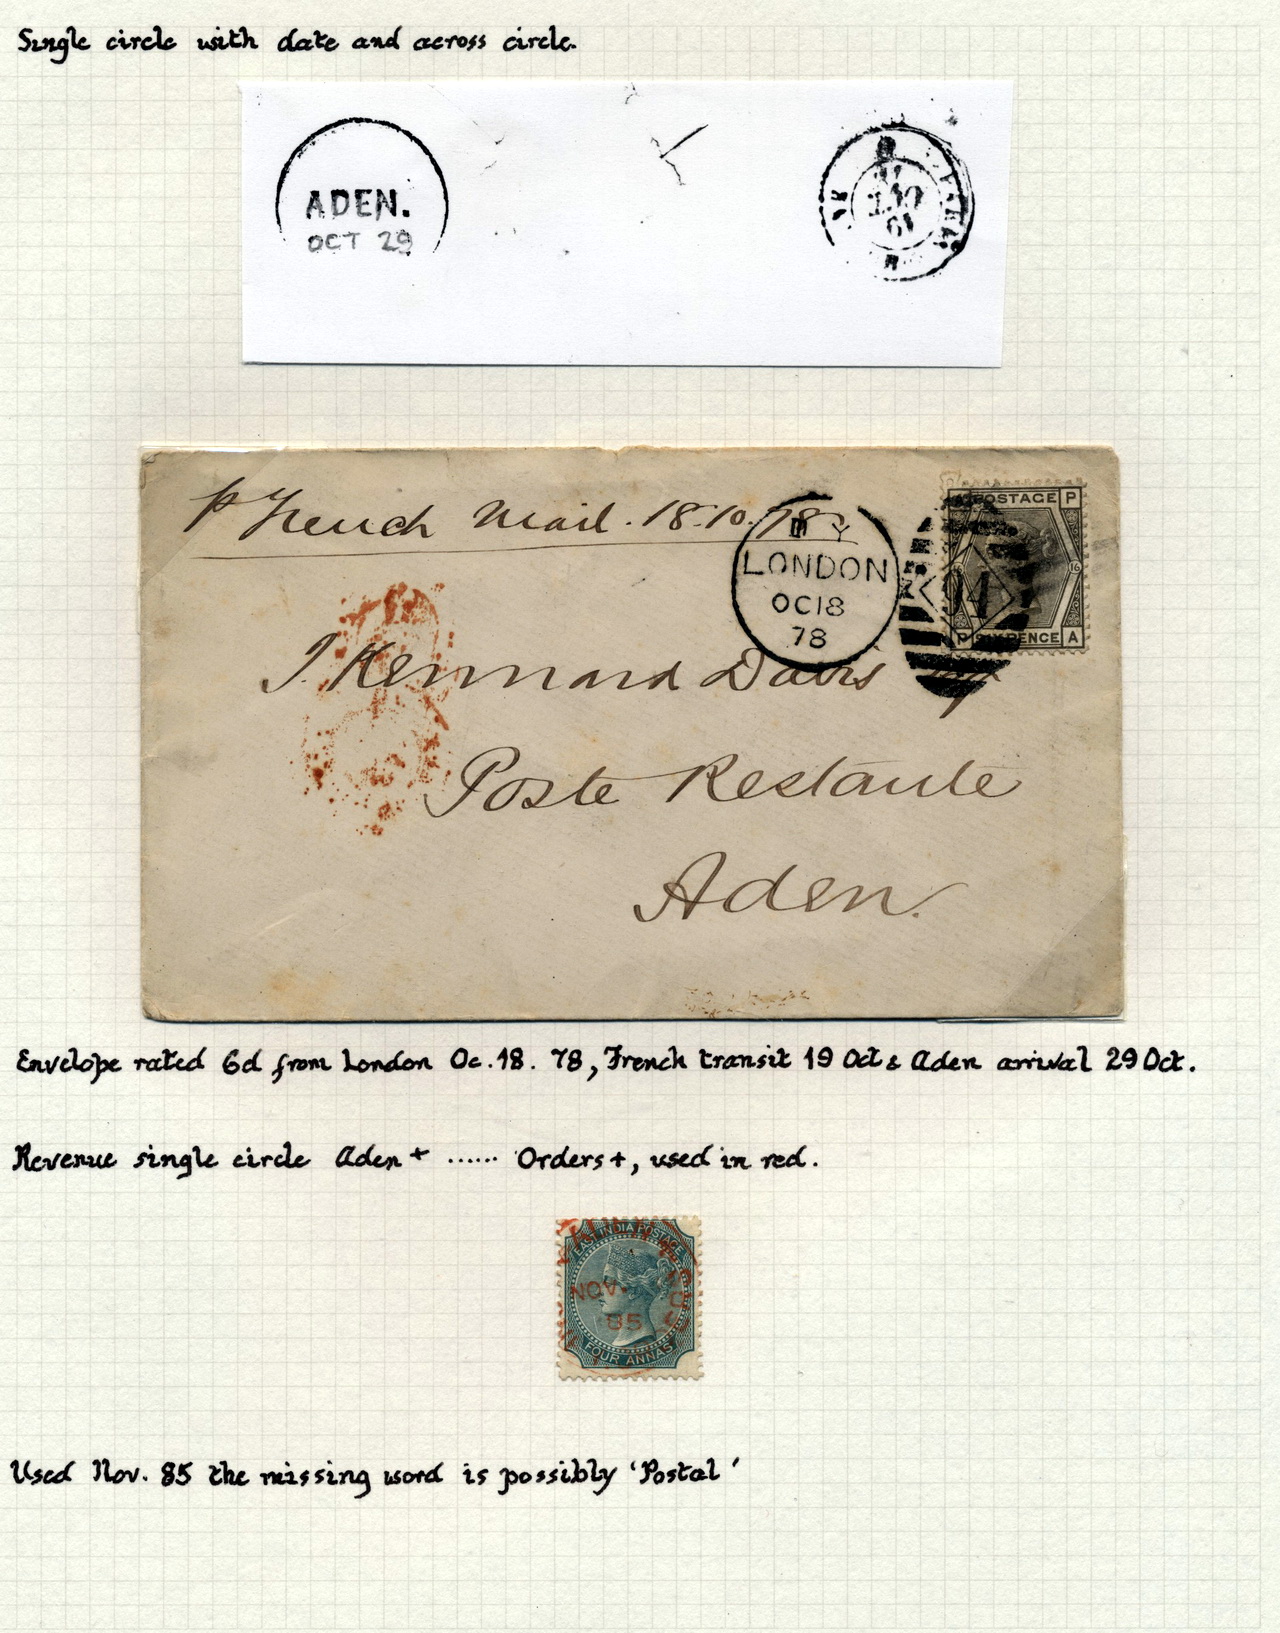 Single circle with date and across circle.
ADEN.
OCT 29
p French Mail. 18.10.78
LONDON
OC 18
78
POSTAGE P
16
P SIX PENCE A
J. Kennard Davis
Poste Restante
Aden.
Envelope rated 6d from London Oc. 18. 78, French transit 19 Oct & Aden arrival 29 Oct.
Revenue single circle Aden + ...... Orders +, used in red.
EAST INDIA POSTAGE
NOV.
85
FOUR ANNAS
Used Nov. 85 the missing word is possibly 'Postal'